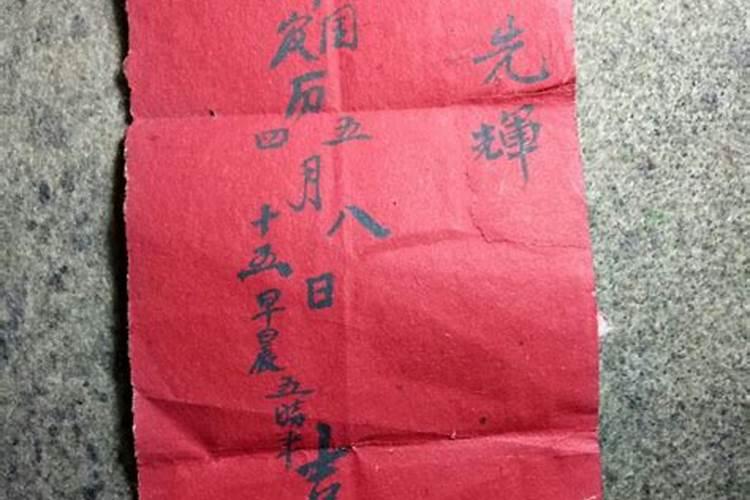 先輝
国 五 八
历 月 日 吉
农 四 十五早晨五時半